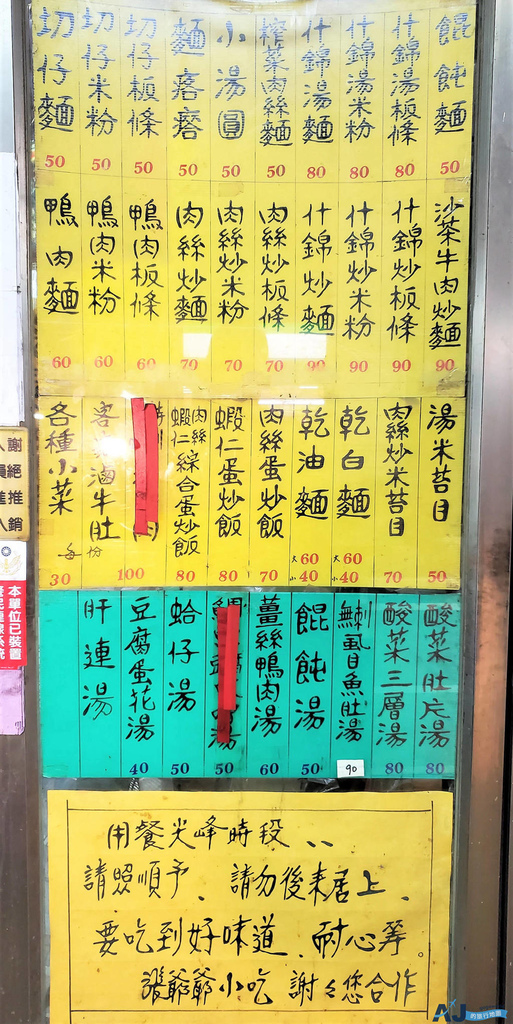 餛飩麵 50
什錦湯板條 80
什錦湯米粉 80
什錦湯麵 80
榨菜肉絲麵 50
小湯圓 50
麵 50
切仔板條 50
切仔米粉 50
切仔麵 50
沙茶牛肉炒麵 90
什錦炒板條 90
什錦炒米粉 90
什錦炒麵 90
肉絲炒板條 70
肉絲炒米粉 70
肉絲炒麵 70
鴨肉板條 60
鴨肉米粉 60
鴨肉麵 60
湯米苔目 50
肉絲炒米苔目 70
乾白麵 大60 小40
乾油麵 大60 小40
肉絲蛋炒飯 70
蝦仁蛋炒飯 80
肉絲蝦仁綜合蛋炒飯 80
肉
客家滷牛肚 每份 100
各種小菜 30
酸菜肚片湯 80
酸菜三層湯 80
虱目魚肚湯 90
餛飩湯 50
薑絲鴨肉湯 60
湯 50
蛤仔湯 50
豆腐蛋花湯 40
肝連湯
用餐尖峰時段..
請照順予、請勿後來居上、
要吃到好味道、耐心等。
張爺爺小吃 謝々您合作
謝絕推銷
本單位已裝置
AJ
的旅行地圖